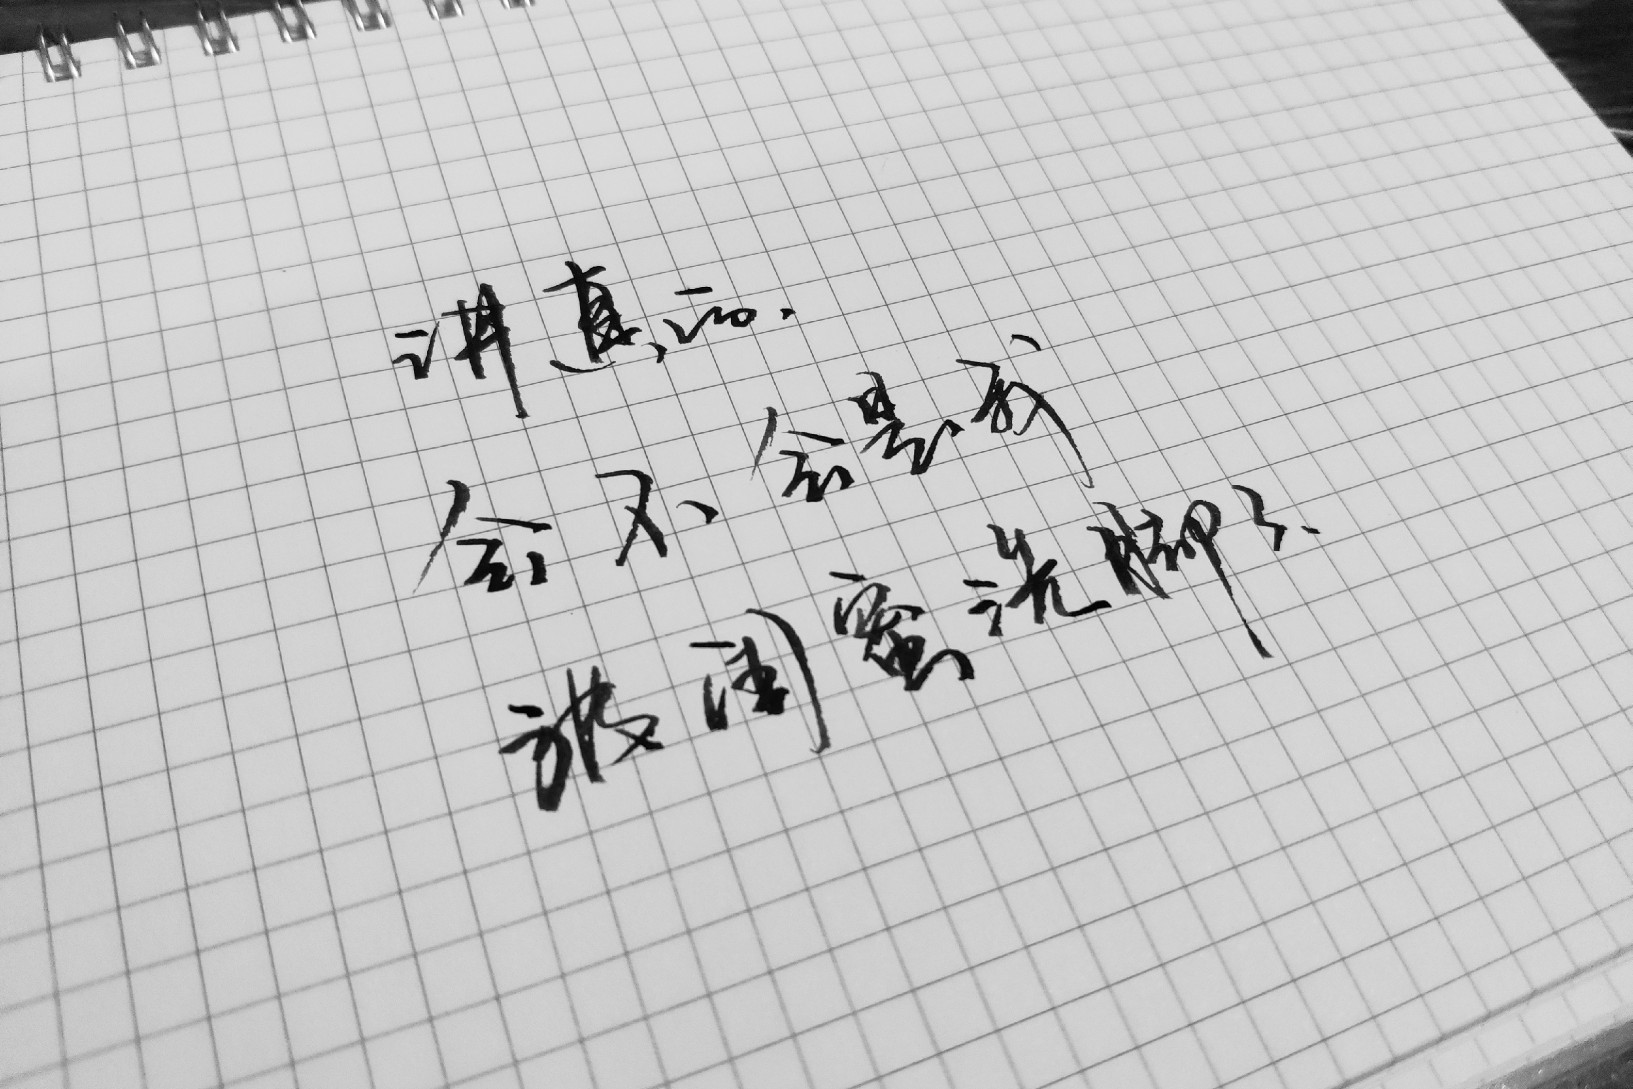 讲真话.
会不会是我
被闺蜜洗脚了.